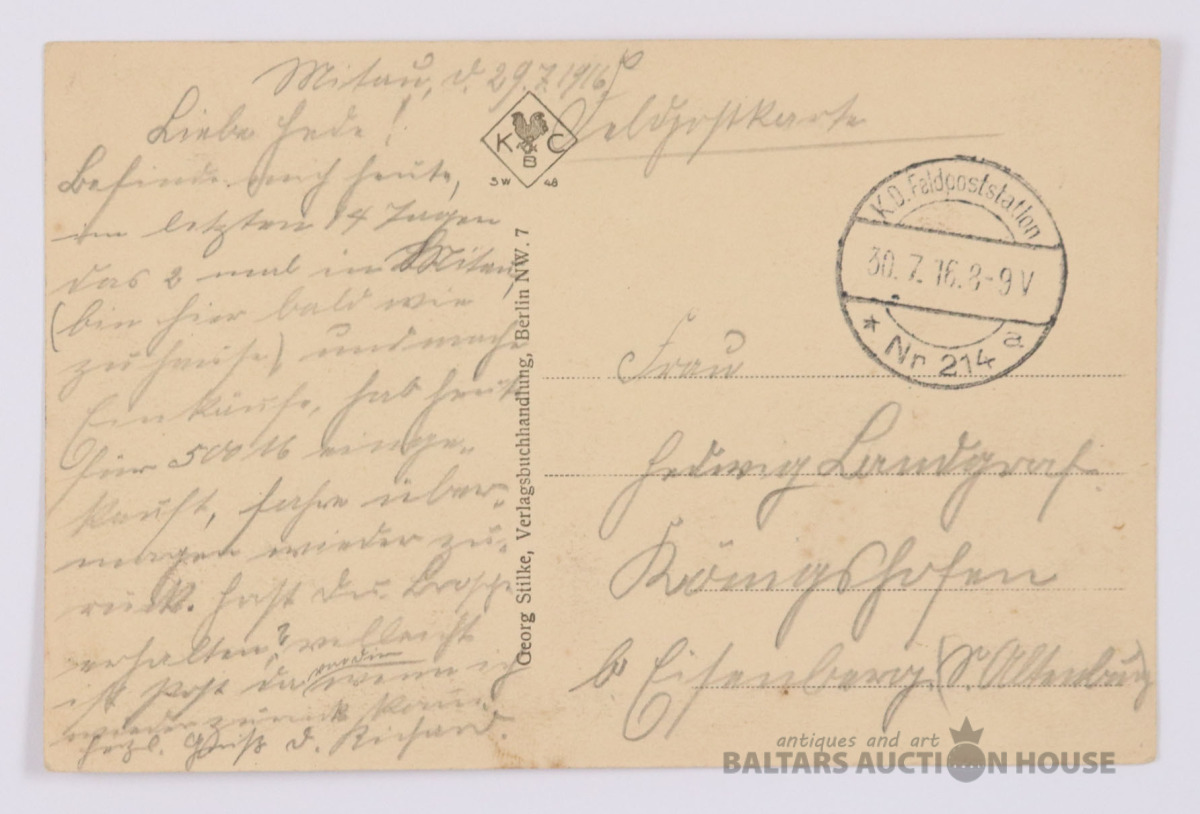 Mitau, d. 29.7.1916.
Liebe Hede!
Befinde mich heute,
im letzten 14 Tagen
das 2 mal in Mitau,
(bin hier bald wie
zu hause) und mache
Einkäufe, hab heute
für 500 M einge-
kauft, fahre über-
morgen wieder zu-
rück. Hast du
erhalten? vielleicht
ist Post da wenn ich
wieder zurück
herzl. Gruß d. Richard.
K & C
B
SW 48
Georg Stilke, Verlagsbuchhandlung, Berlin NW. 7
Feldpostkarte
K.D. Feldpoststation
30.7.16.8-9V
* Nr 214 a
Frau
Hedwig Landgraf.
Königshofen
b. Eisenberg. (S. Altenburg)
antiques and art
BALTARS AUCTION HOUSE